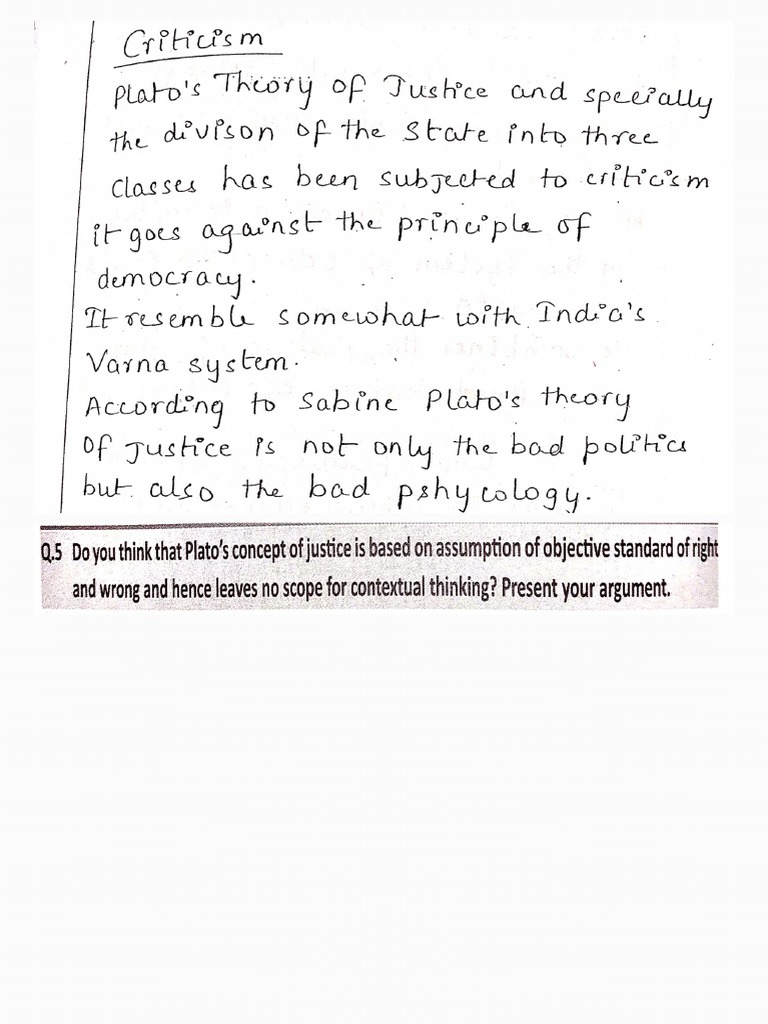 Criticism
Plato's Theory of Justice and specially
the divison of the State into three
Classes has been subjected to criticism
it goes against the principle of
democracy.
It resemble somewhat with India's
Varna system.
According to Sabine Plato's theory
Of Justice is not only the bad politics
but also the bad pshycology.
Q.5 Do you think that Plato's concept of justice is based on assumption of objective standard of right
and wrong and hence leaves no scope for contextual thinking? Present your argument.